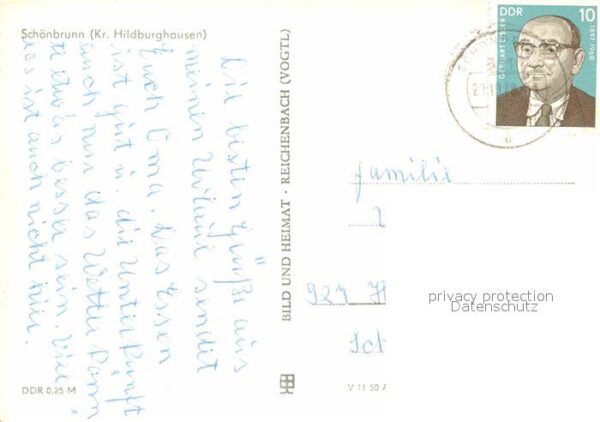 Schönbrunn (Kr. Hildburghausen)
Die besten Grüße aus
meinen Urlaub sendet
Euch Oma. Das Essen
ist gut u. die Unterkunft
auch nur das Wetter kann
etwas besser sein. Viel
los ist auch nicht hier.
DDR 0,25 M
BILD UND HEIMAT · REICHENBACH (VOGTL)
V 11 50 /
DDR
10
GERHART EISLER
1897-1968
Familie
924
privacy protection
Datenschutz